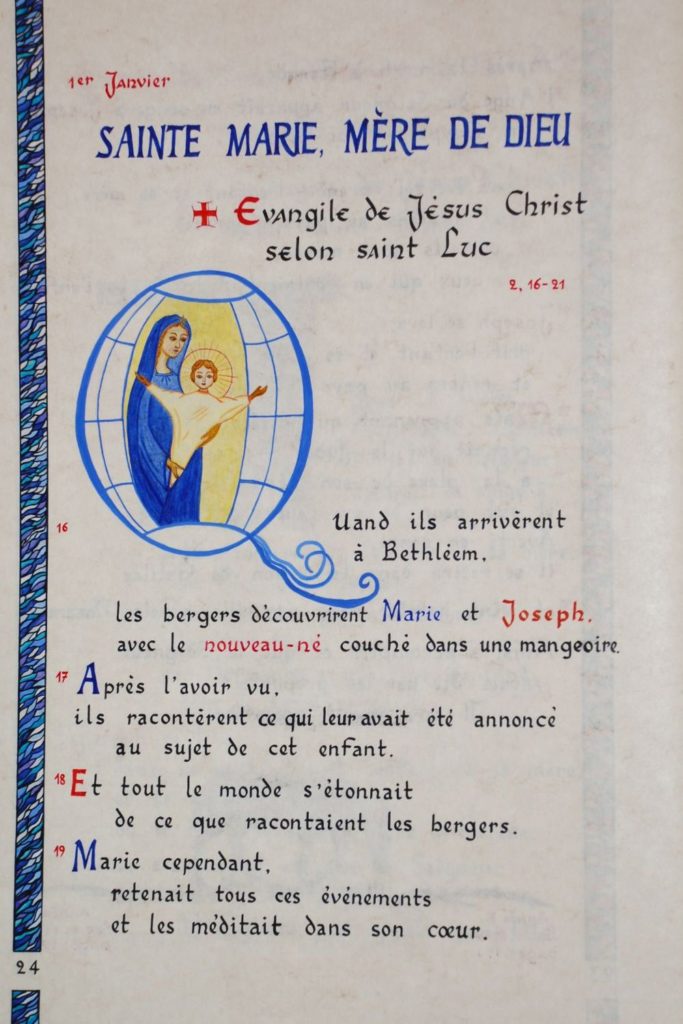 1er Janvier
SAINTE MARIE, MÈRE DE DIEU
✠ Evangile de Jésus Christ
selon saint Luc
2, 16-21
16 Quand ils arrivèrent
à Bethléem,
les bergers découvrirent Marie et Joseph,
avec le nouveau-né couché dans une mangeoire.
17 Après l'avoir vu,
ils racontèrent ce qui leur avait été annoncé
au sujet de cet enfant.
18 Et tout le monde s'étonnait
de ce que racontaient les bergers.
19 Marie cependant,
retenait tous ces événements
et les méditait dans son cœur.
24